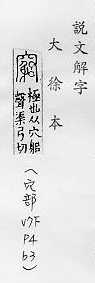 説文解字
大徐本
竆
極也从穴躳
聲渠弓切
(穴部 V7下 P4 b3)